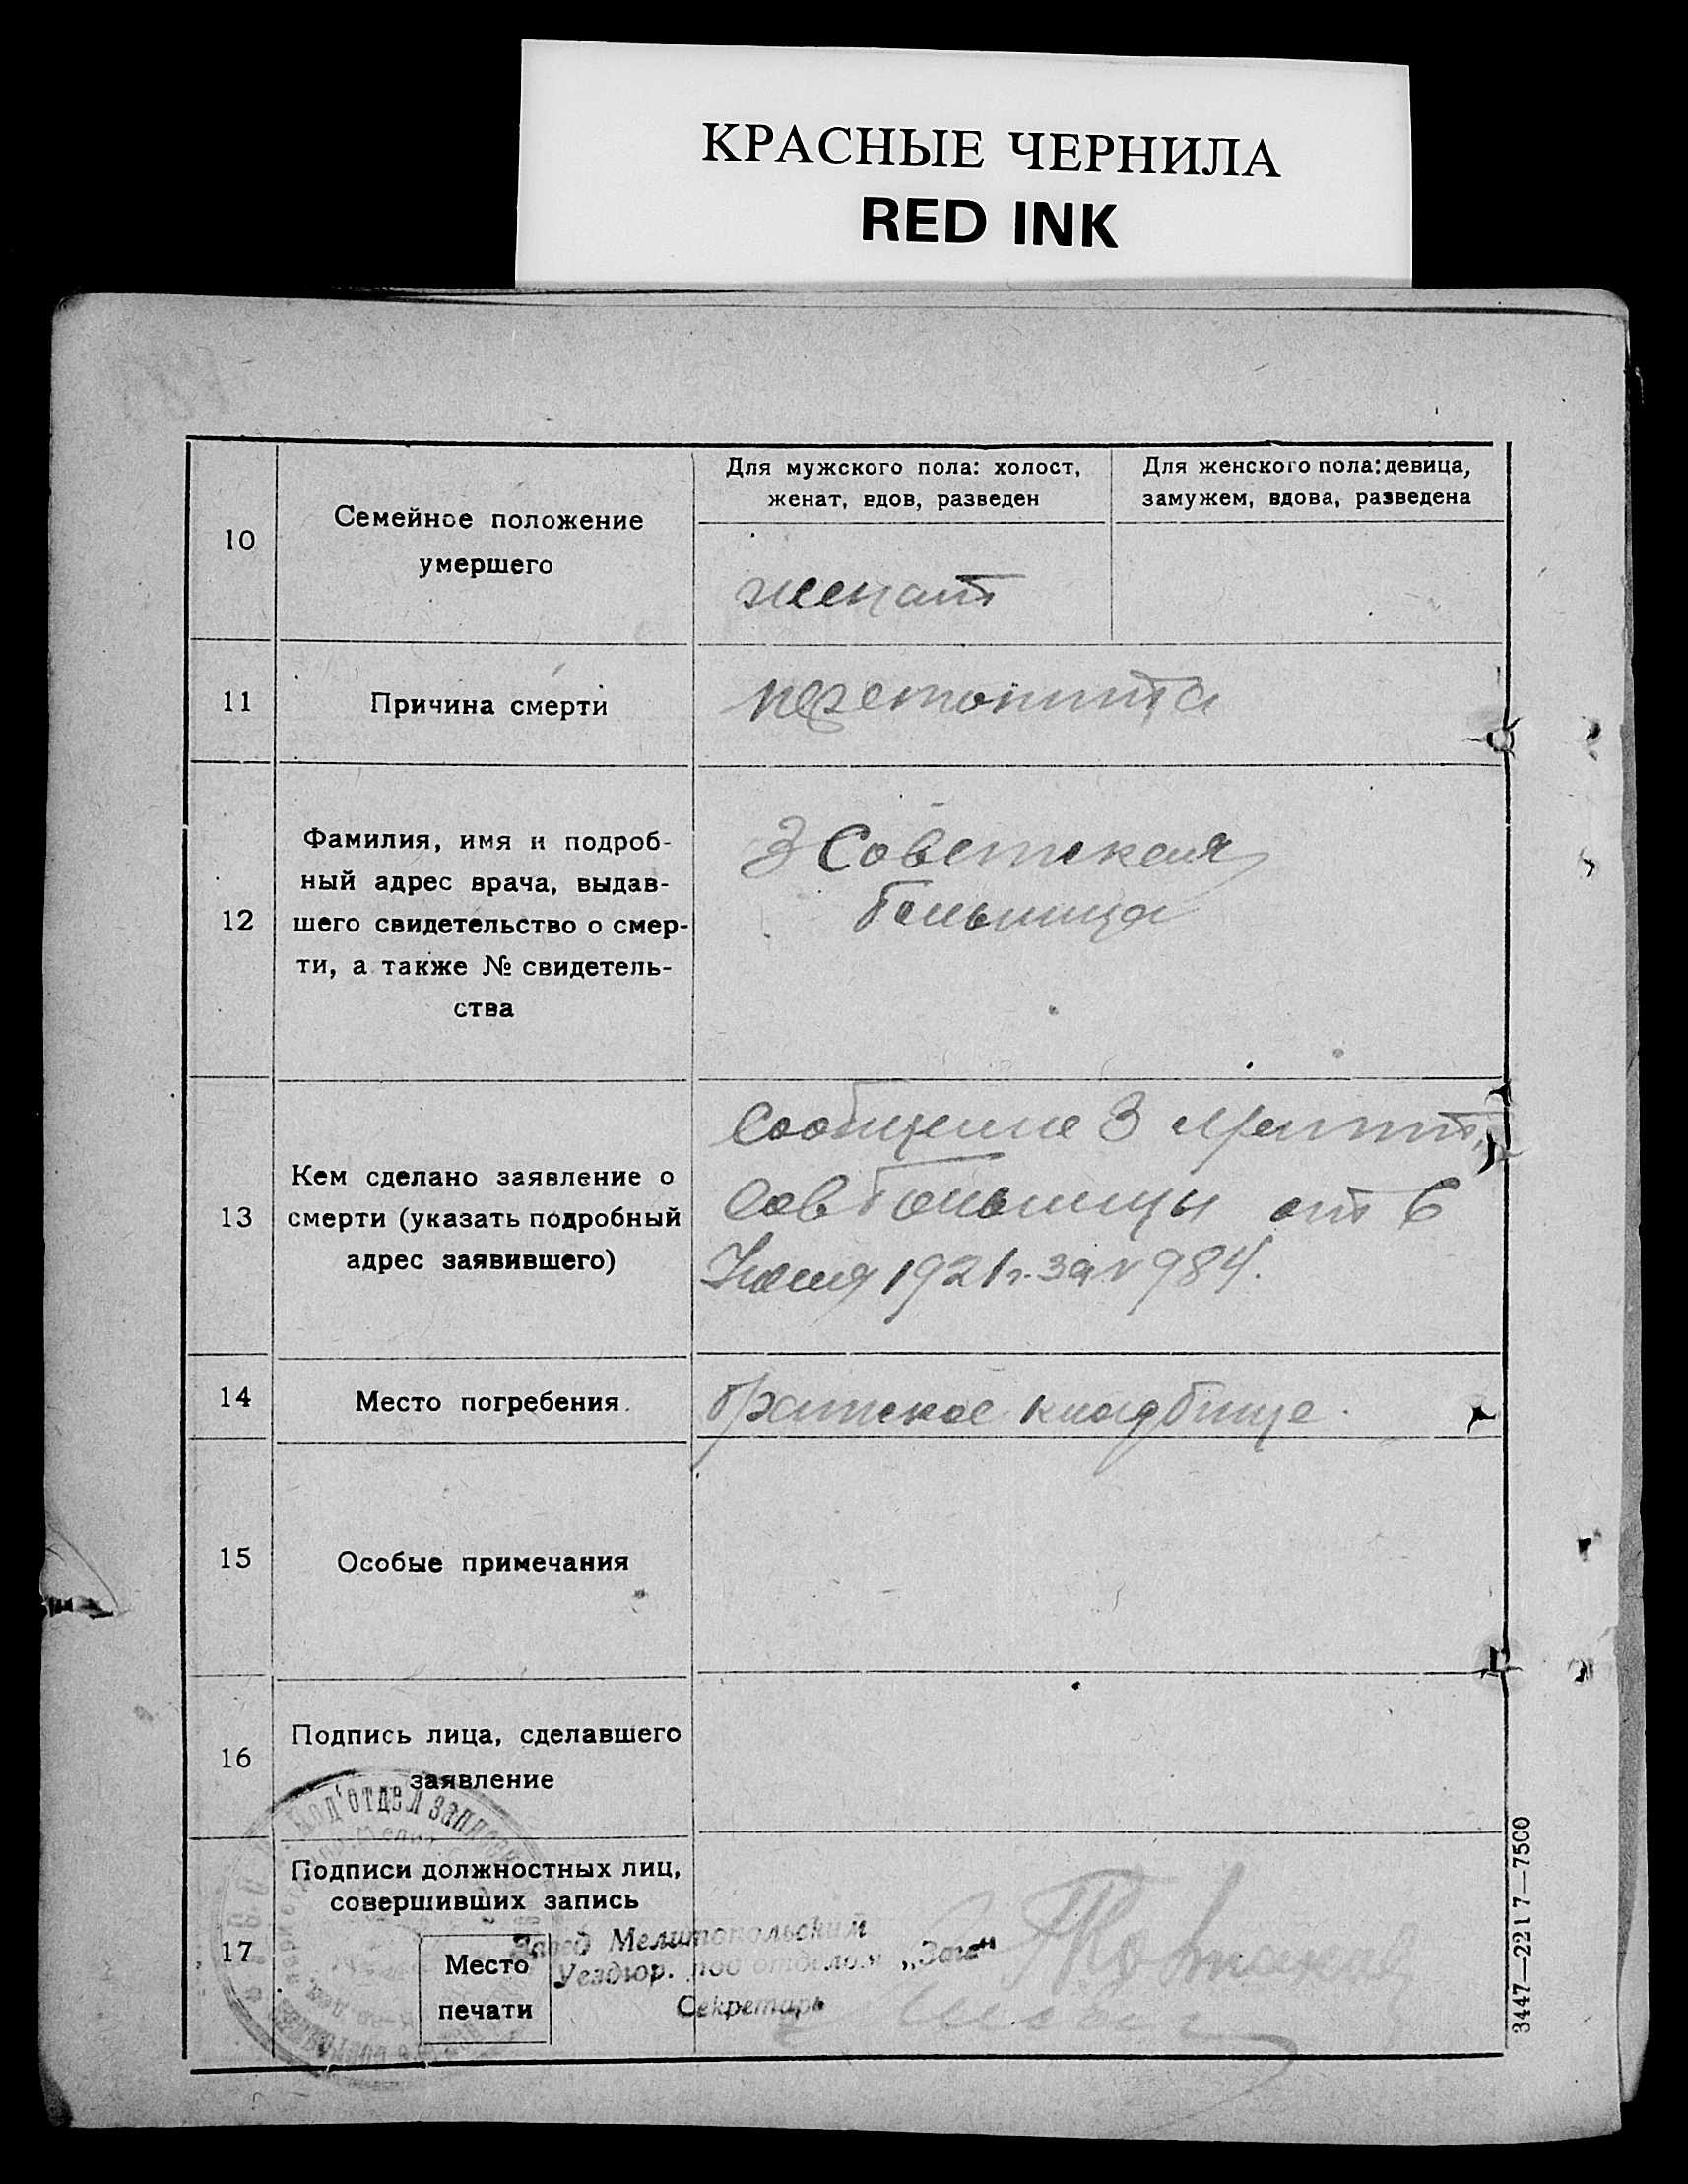 КРАСНЫЕ ЧЕРНИЛА
RED INK
Для мужского пола: холост,
женат, вдов, разведен
Для женского пола: девица,
замужем, вдова, разведена
10
Семейное положение
умершего
женат
11
Причина смерти
перетонита
12
Фамилия, имя и подроб-
ный адрес врача, выдав-
шего свидетельство о смер-
ти, а также № свидетель-
ства
3 Советская
больница
13
Кем сделано заявление о
смерти (указать подробный
адрес заявившего)
Сообщение 3
Совбольницы от 6
Июня 1921 г. за № 984.
14
Место погребения.
братское кладбище.
15
Особые примечания
16
Подпись лица, сделавшего
заявление
Под'отдел записи
17
Подписи должностных лиц,
совершивших запись
Место
печати
Завед Мелитопольским
Уездюр. под отделом „Загс"
Секретарь
3447—2217—7500